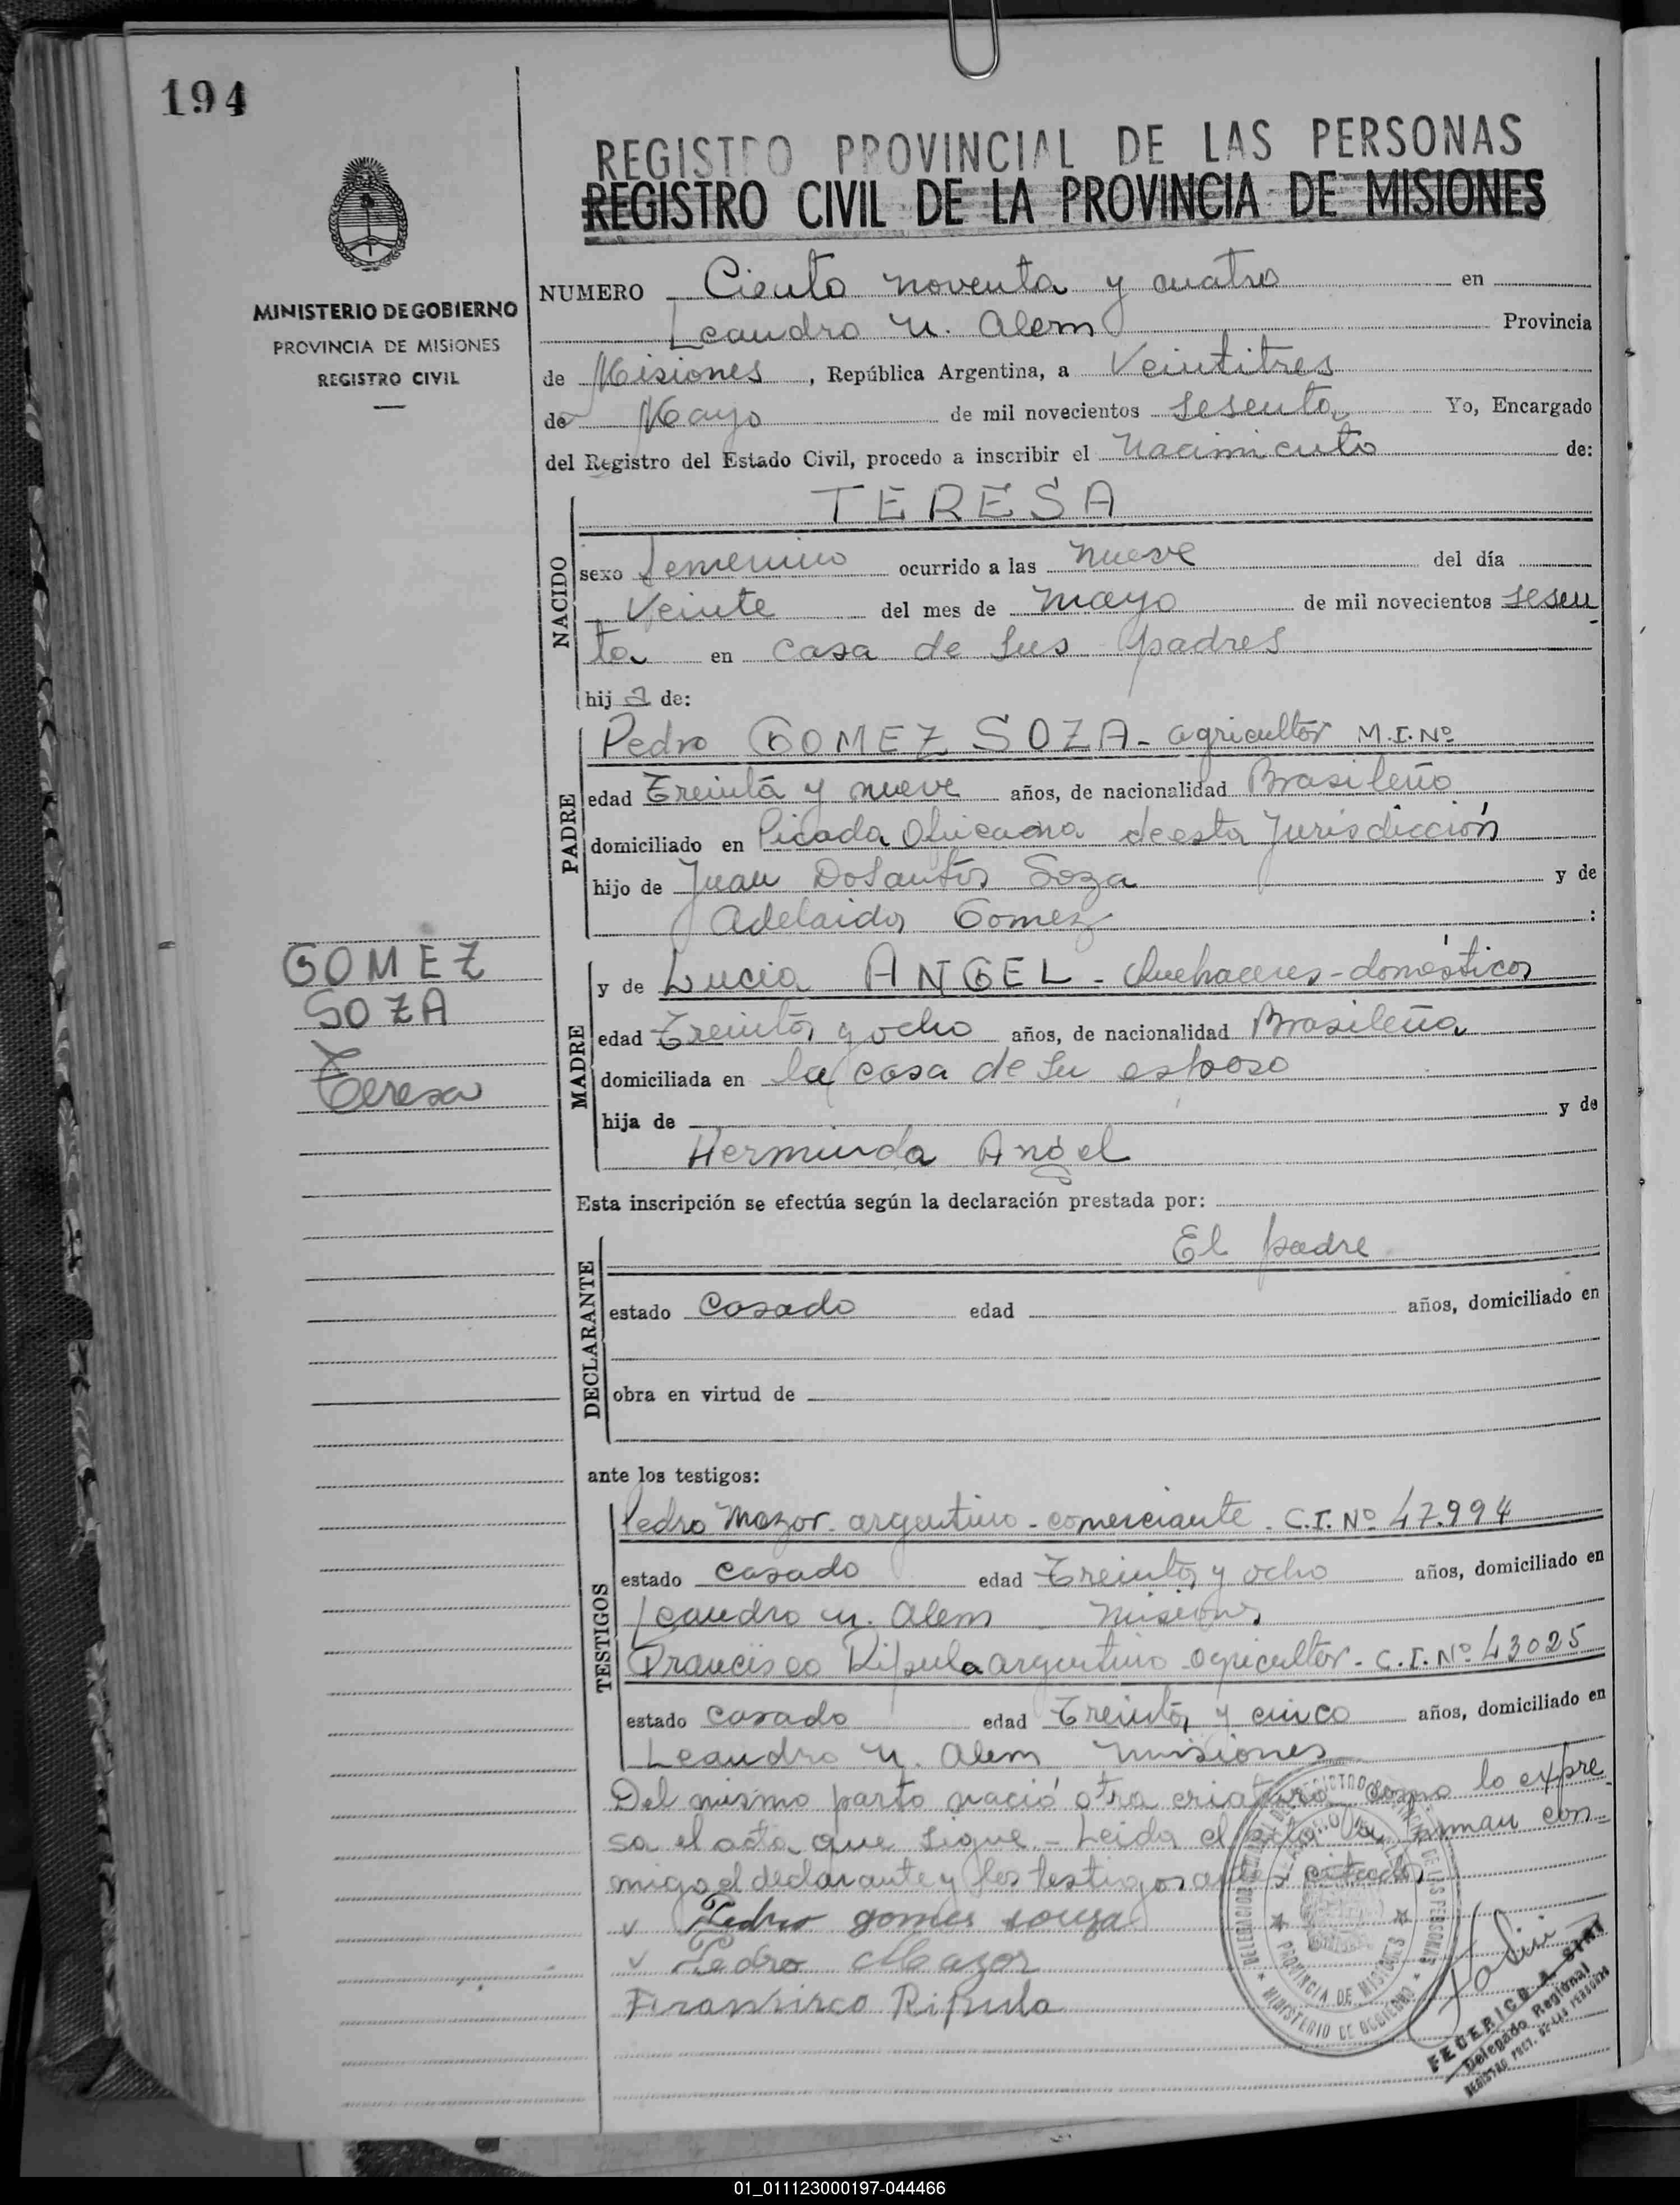 194
MINISTERIO DE GOBIERNO
PROVINCIA DE MISIONES
REGISTRO CIVIL
REGISTRO PROVINCIAL DE LAS PERSONAS
REGISTRO CIVIL DE LA PROVINCIA DE MISIONES
NUMERO Ciento noventa y cuatro en
Leandro N. Alem Provincia
de Misiones, República Argentina, a Veintitres
de Mayo de mil novecientos sesenta Yo, Encargado
del Registro del Estado Civil, procedo a inscribir el Nacimiento de:
NACIDO
TERESA
sexo femenino ocurrido a las nueve del día
Veinte del mes de mayo de mil novecientos sesen
ta en casa de sus padres
hij a de:
PADRE
Pedro GOMEZ SOZA - agricultor M.I.Nº
edad Treinta y nueve años, de nacionalidad Brasileño
domiciliado en Picada de esta Jurisdicción
hijo de Juan DoSantos Soza y de
Adelaida Gomez :
GOMEZ
SOZA
Teresa
MADRE
y de Lucia ANGEL - Quehaceres - domésticos
edad Treinta y ocho años, de nacionalidad Brasileña
domiciliada en la casa de su esposo
hija de y de
Herminda Angel
Esta inscripción se efectúa según la declaración prestada por:
DECLARANTE
El padre
estado Casado edad años, domiciliado en
obra en virtud de
ante los testigos:
TESTIGOS
Pedro Mazor - argentino - comerciante - C.I. Nº 47.994
estado casado edad Treinta y ocho años, domiciliado en
Leandro N. Alem Misiones
Francisco Ripula argentino - agricultor - C.I. Nº 43025
estado casado edad Treinta y cinco años, domiciliado en
Leandro N. Alem Misiones
Del mismo parto nació otra criatura como lo expre
sa el acta que sigue - Leida el acta la firman con-
migo el declarante y los testigos antes citados
v Pedro gomes souza
v Pedro Mazor
Fransisco Ripula
PROVINCIA DE MISIONES
MINISTERIO DE GOBIERNO
FEDERICO A.
Delegado Regional
01_011123000197-044466